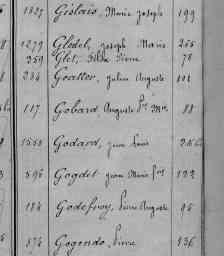 1827 Gislais, Marie Joseph 199
1277 Gledel, Joseph Marie 255
359 Glet, Pierre 78
234 Goatter, Julien Auguste 101
117 Gobard, Auguste Pre Mie 88
1555 Godard, Jean Louis
596 Gogdet Jean Marie Frs 122
184 Godefroy, Pierre Auguste 95
874 Gogendo, Pierre 136